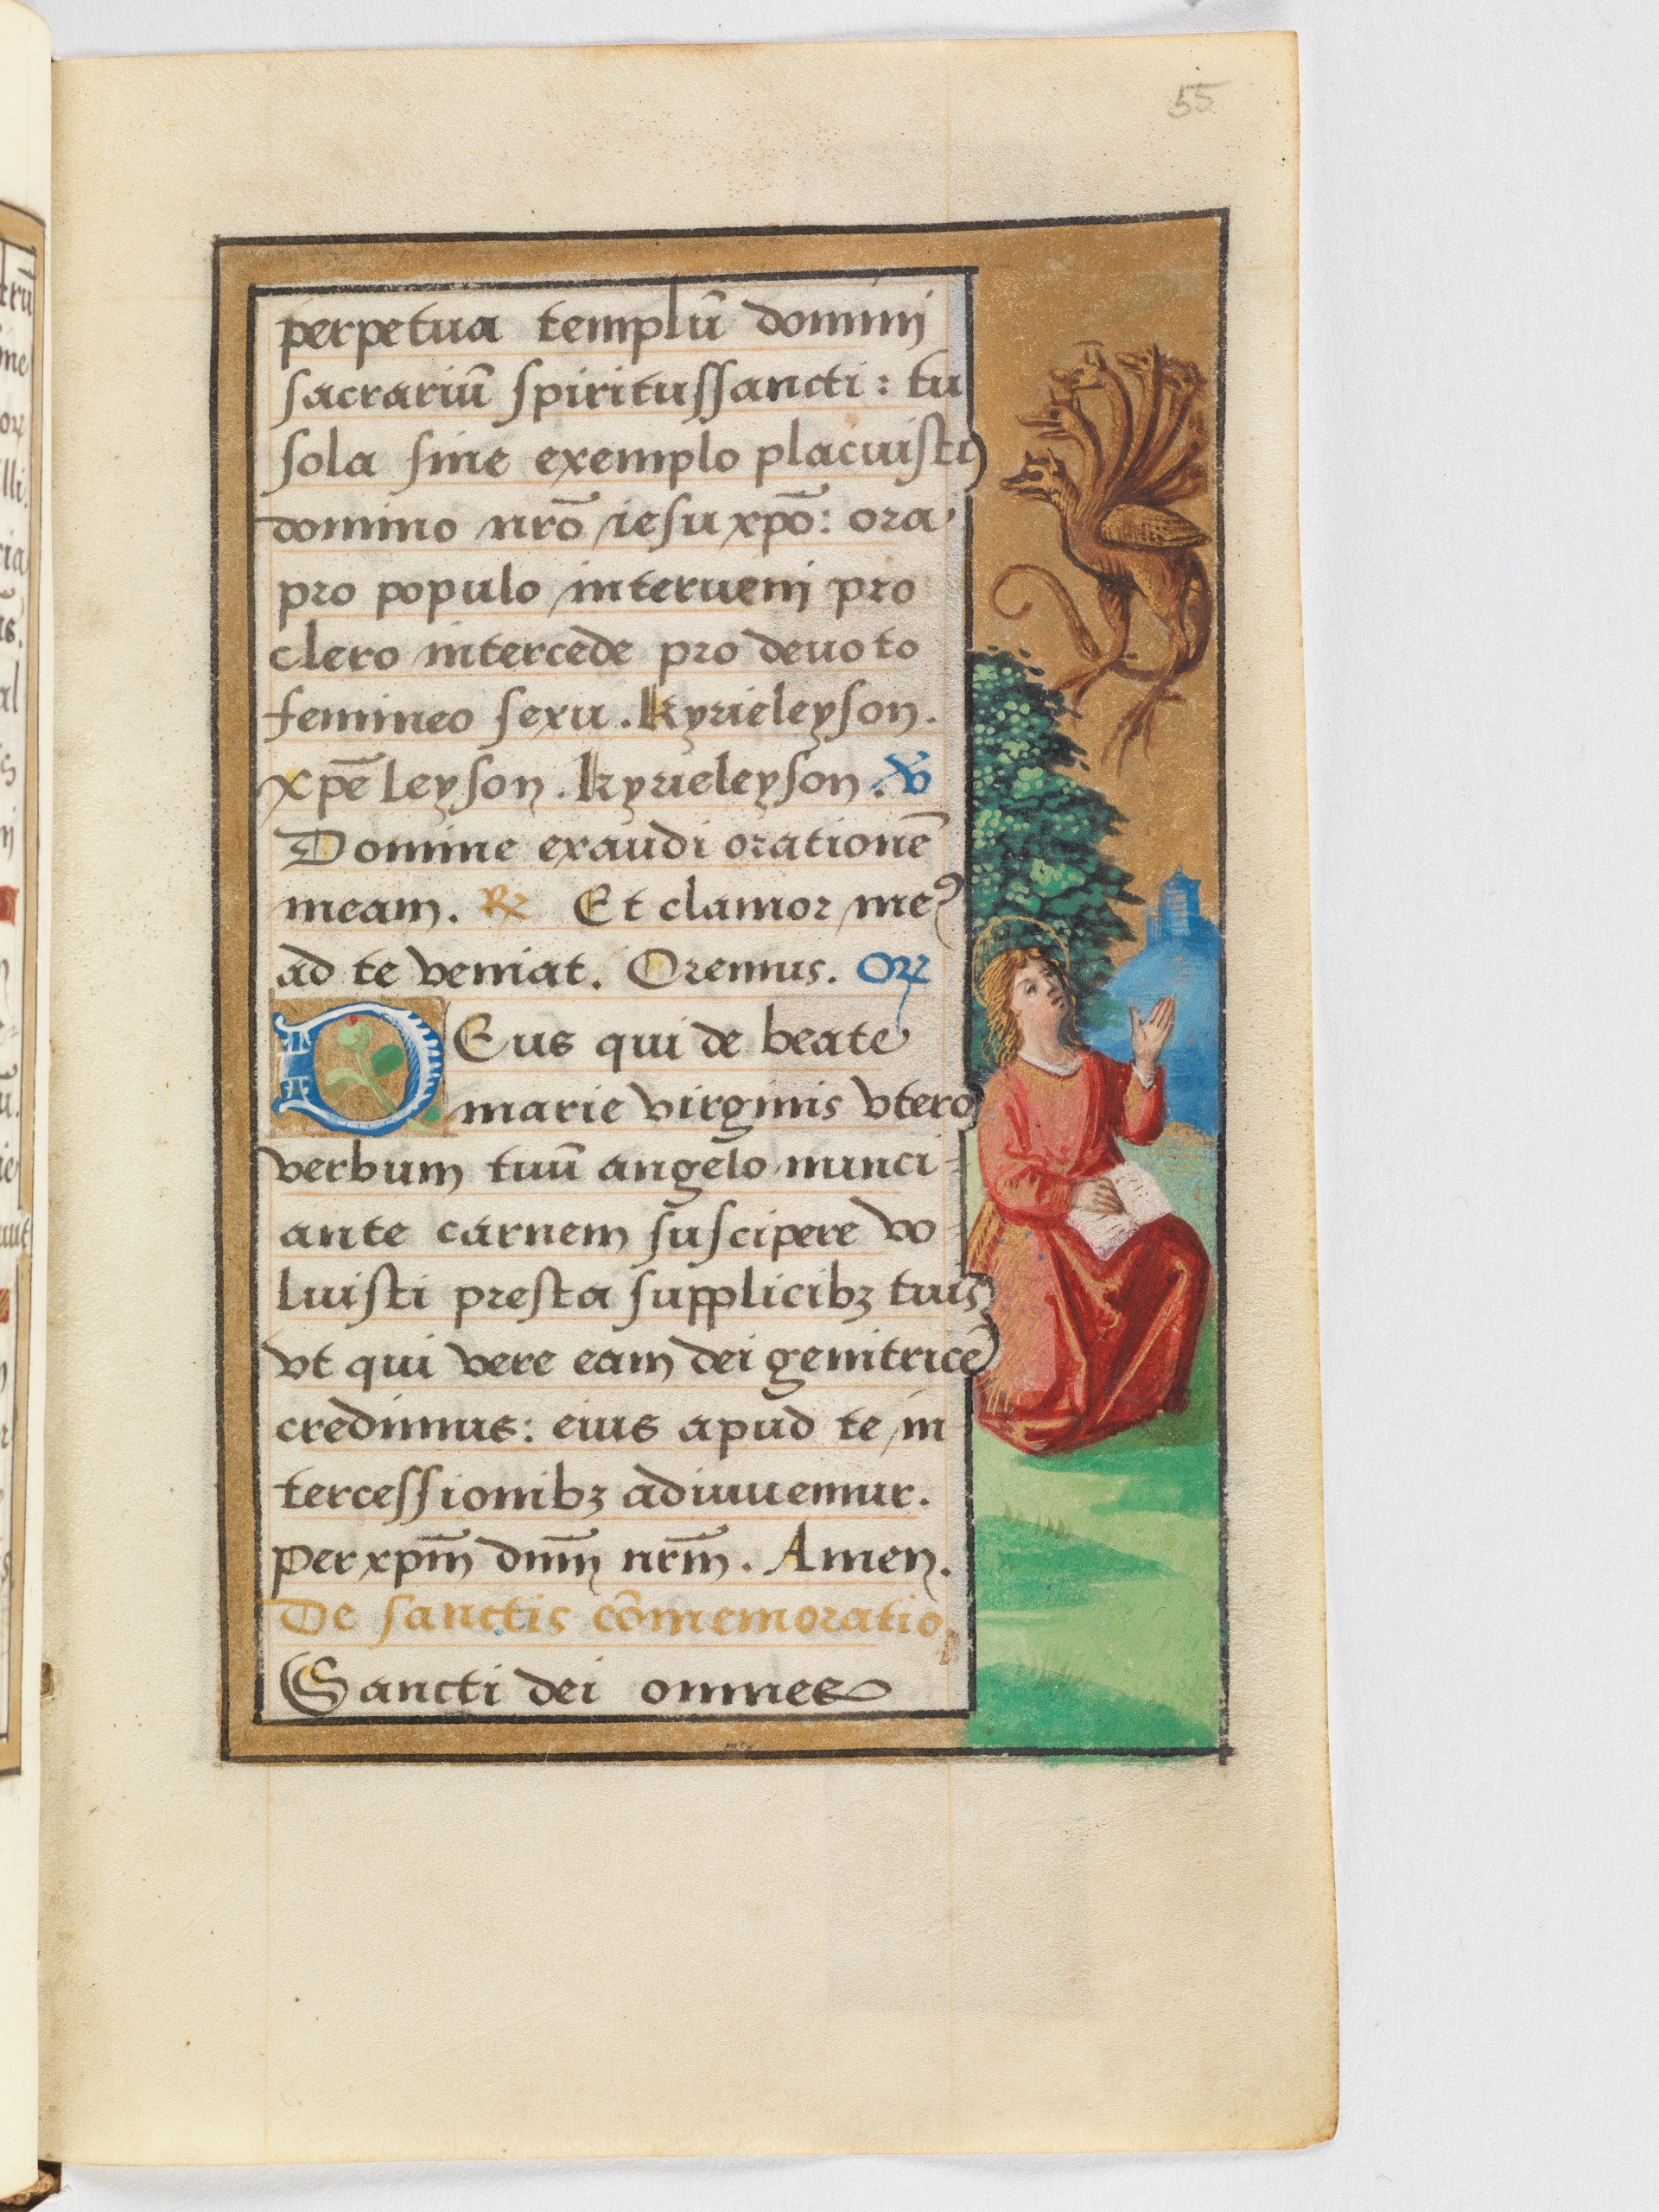 55
perpetua templū domini
sacrariū spiritussancti: tu
sola sine exemplo placuisti
domino nrō iesu xpō: ora
pro populo interueni pro
clero intercede pro deuoto
femineo sexu. kyrieleyson.
xpē leyson. kyrieleyson. ℣
Domine exaudi orationē
meam. ℟ Et clamor meꝰ
ad te veniat. Oremus. Oꝝ
DEus qui de beate
marie virginis vtero
verbum tuū angelo nunci-
ante carnem suscipere vo
luisti presta supplicibꝫ tuis
vt qui vere eam dei genitricē
credimus: eius apud te in
tercessionibꝫ adiuuemur.
Per xpm̄ dnm̄ nrm̄. Amen.
De sanctis cōmemoratio.
Sancti dei omnes